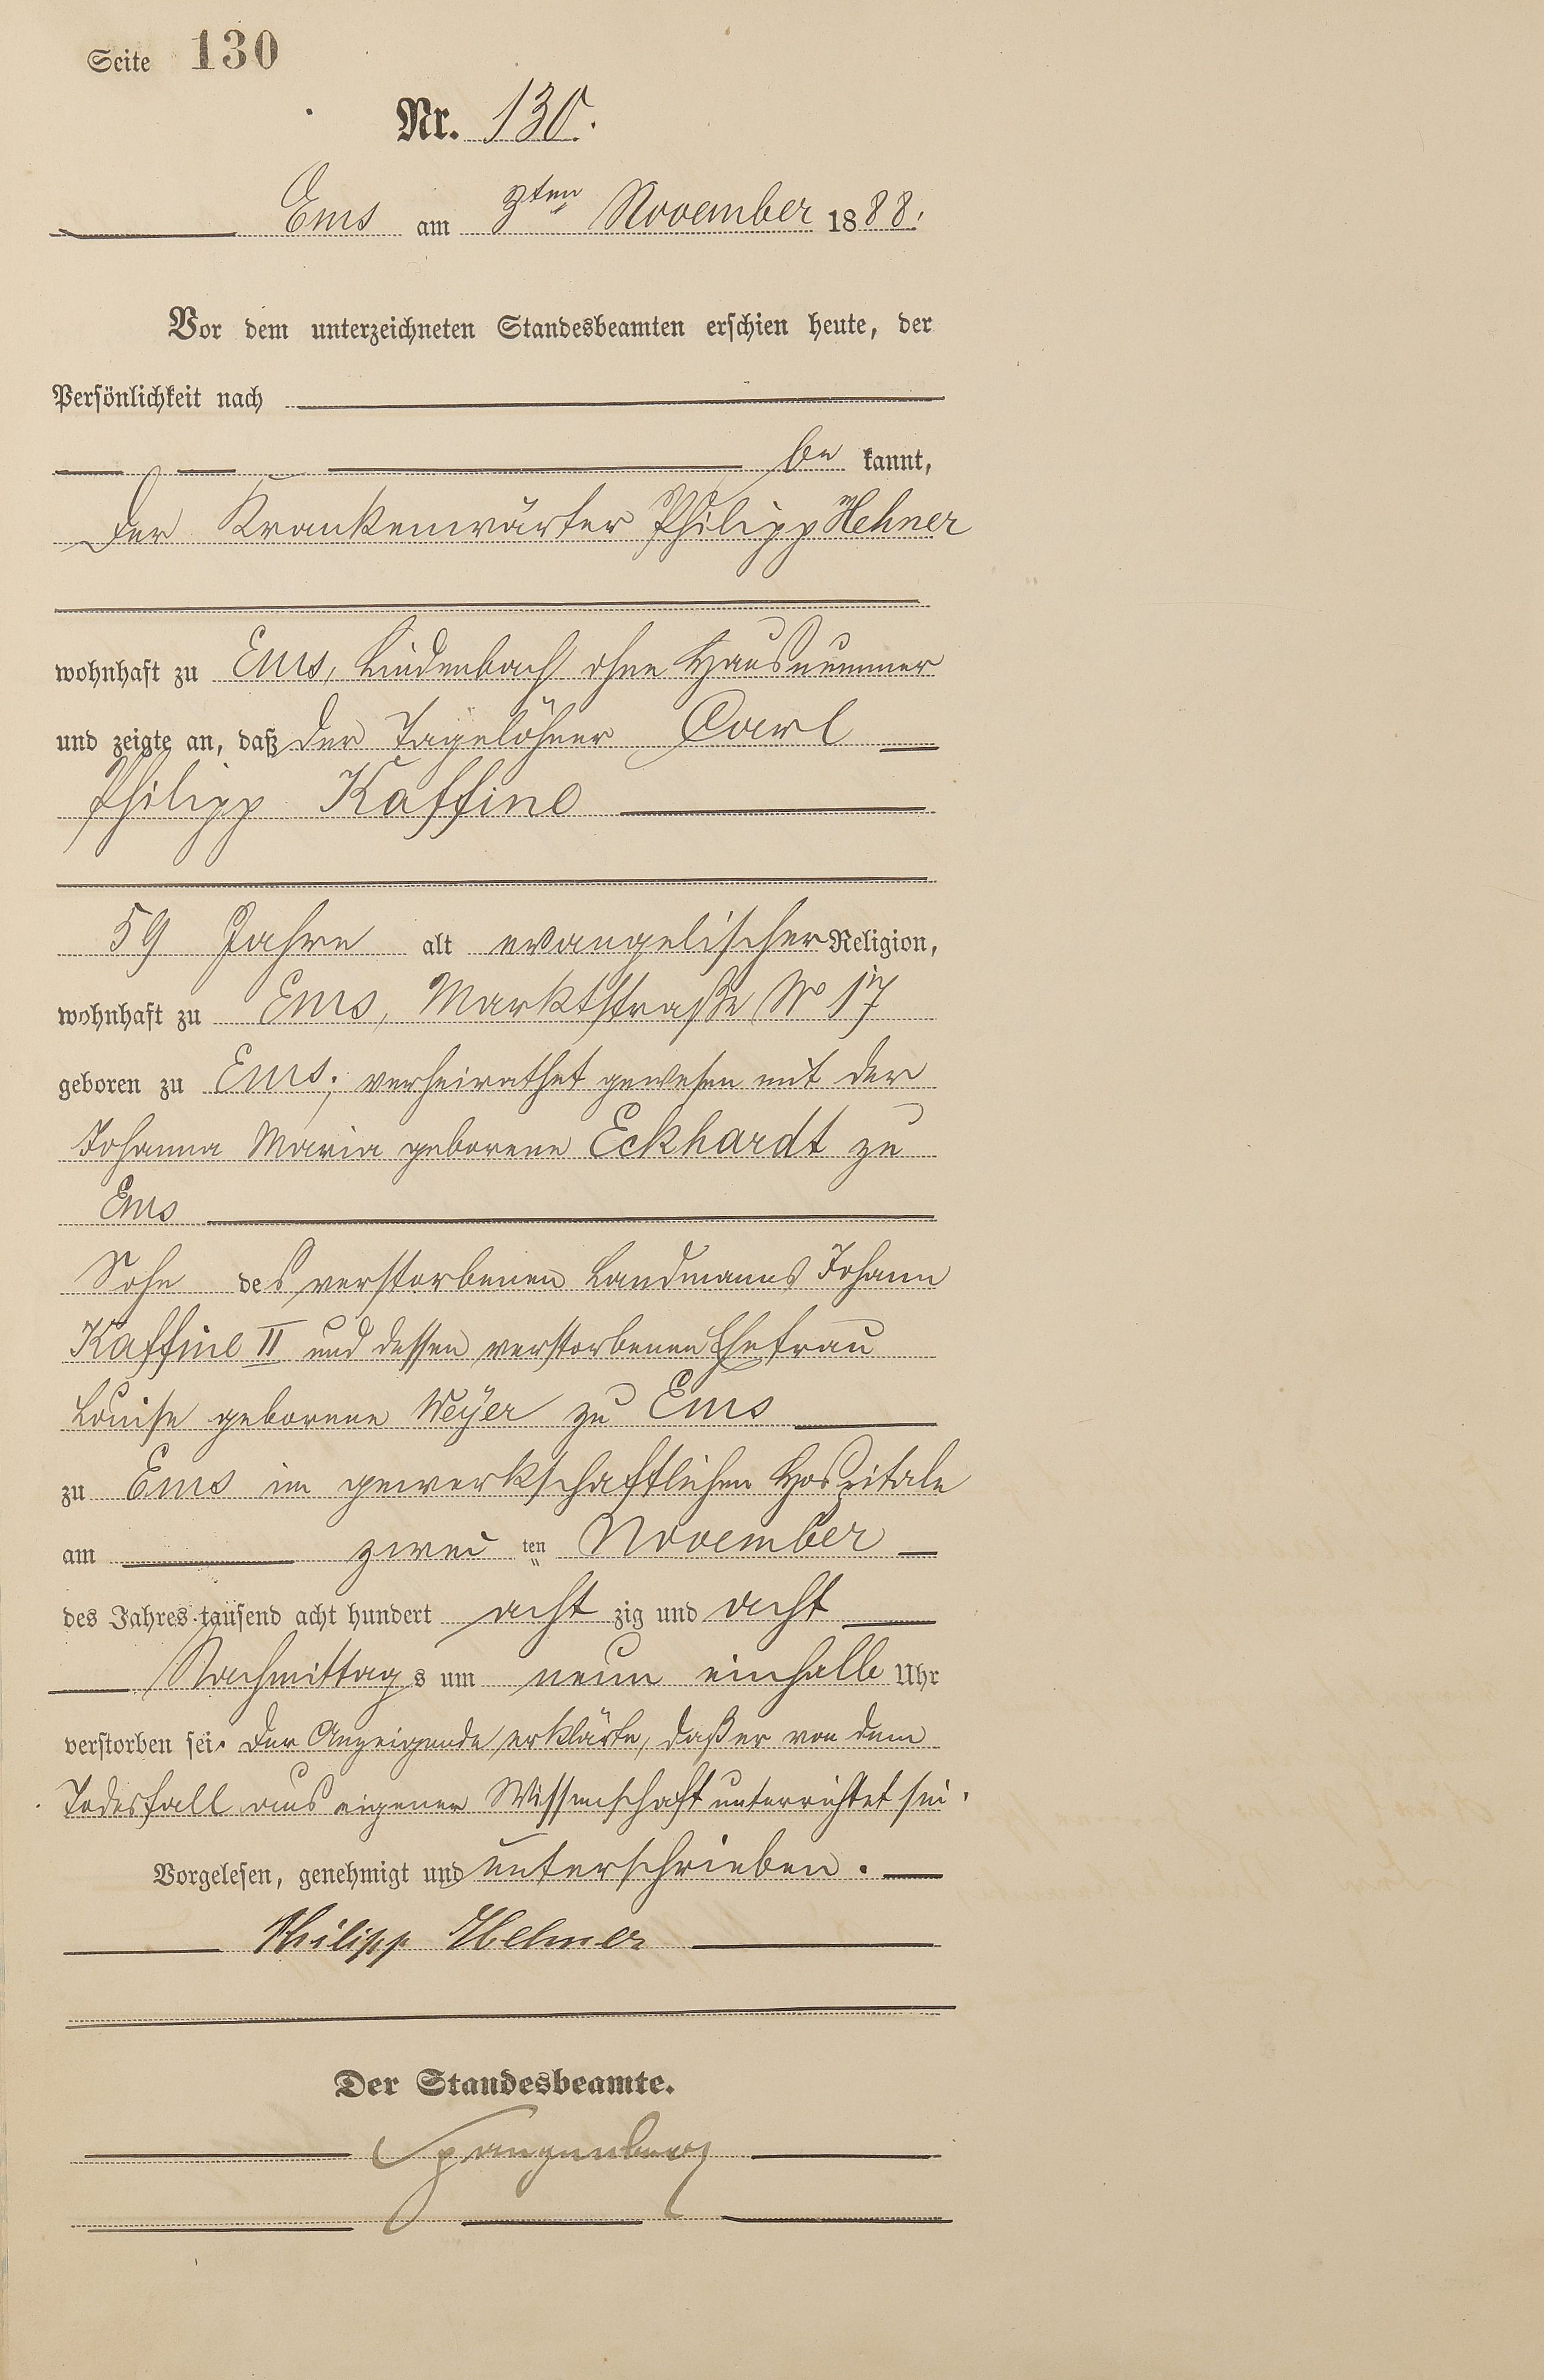 Seite 130
Nr. 130.
Ems am 3ten November 1888.
Vor dem unterzeichneten Standesbeamten erschien heute, der
Persönlichkeit nach
be kannt,
der Krankenwärter Philipp Hehner
wohnhaft zu Ems, Lindenbach ohne Hausnummer
und zeigte an, daß der Tagelöhner Carl
Philipp Kaffine
59 Jahre alt evangelischer Religion,
wohnhaft zu Ems, Marktstraße No 17
geboren zu Ems; verheirathet gewesen mit der
Johanna Maria geborene Eckhardt zu
Ems
Sohn des verstorbenen Landmanns Johann
Kaffine II und dessen verstorbenen Ehefrau
Louise geborene Meyer zu Ems
zu Ems im gewerkschaftlichen Hospitale
am zwei ten November
des Jahres tausend acht hundert acht zig und acht
Nachmittags um neun einhalb Uhr
verstorben sei. Der Anzeigende erklärte, daß er von dem
Todesfall aus eigener Wissenschaft unterrichtet sei.
Vorgelesen, genehmigt und unterschrieben.
Philipp Hehner
Der Standesbeamte.
Spangenberg